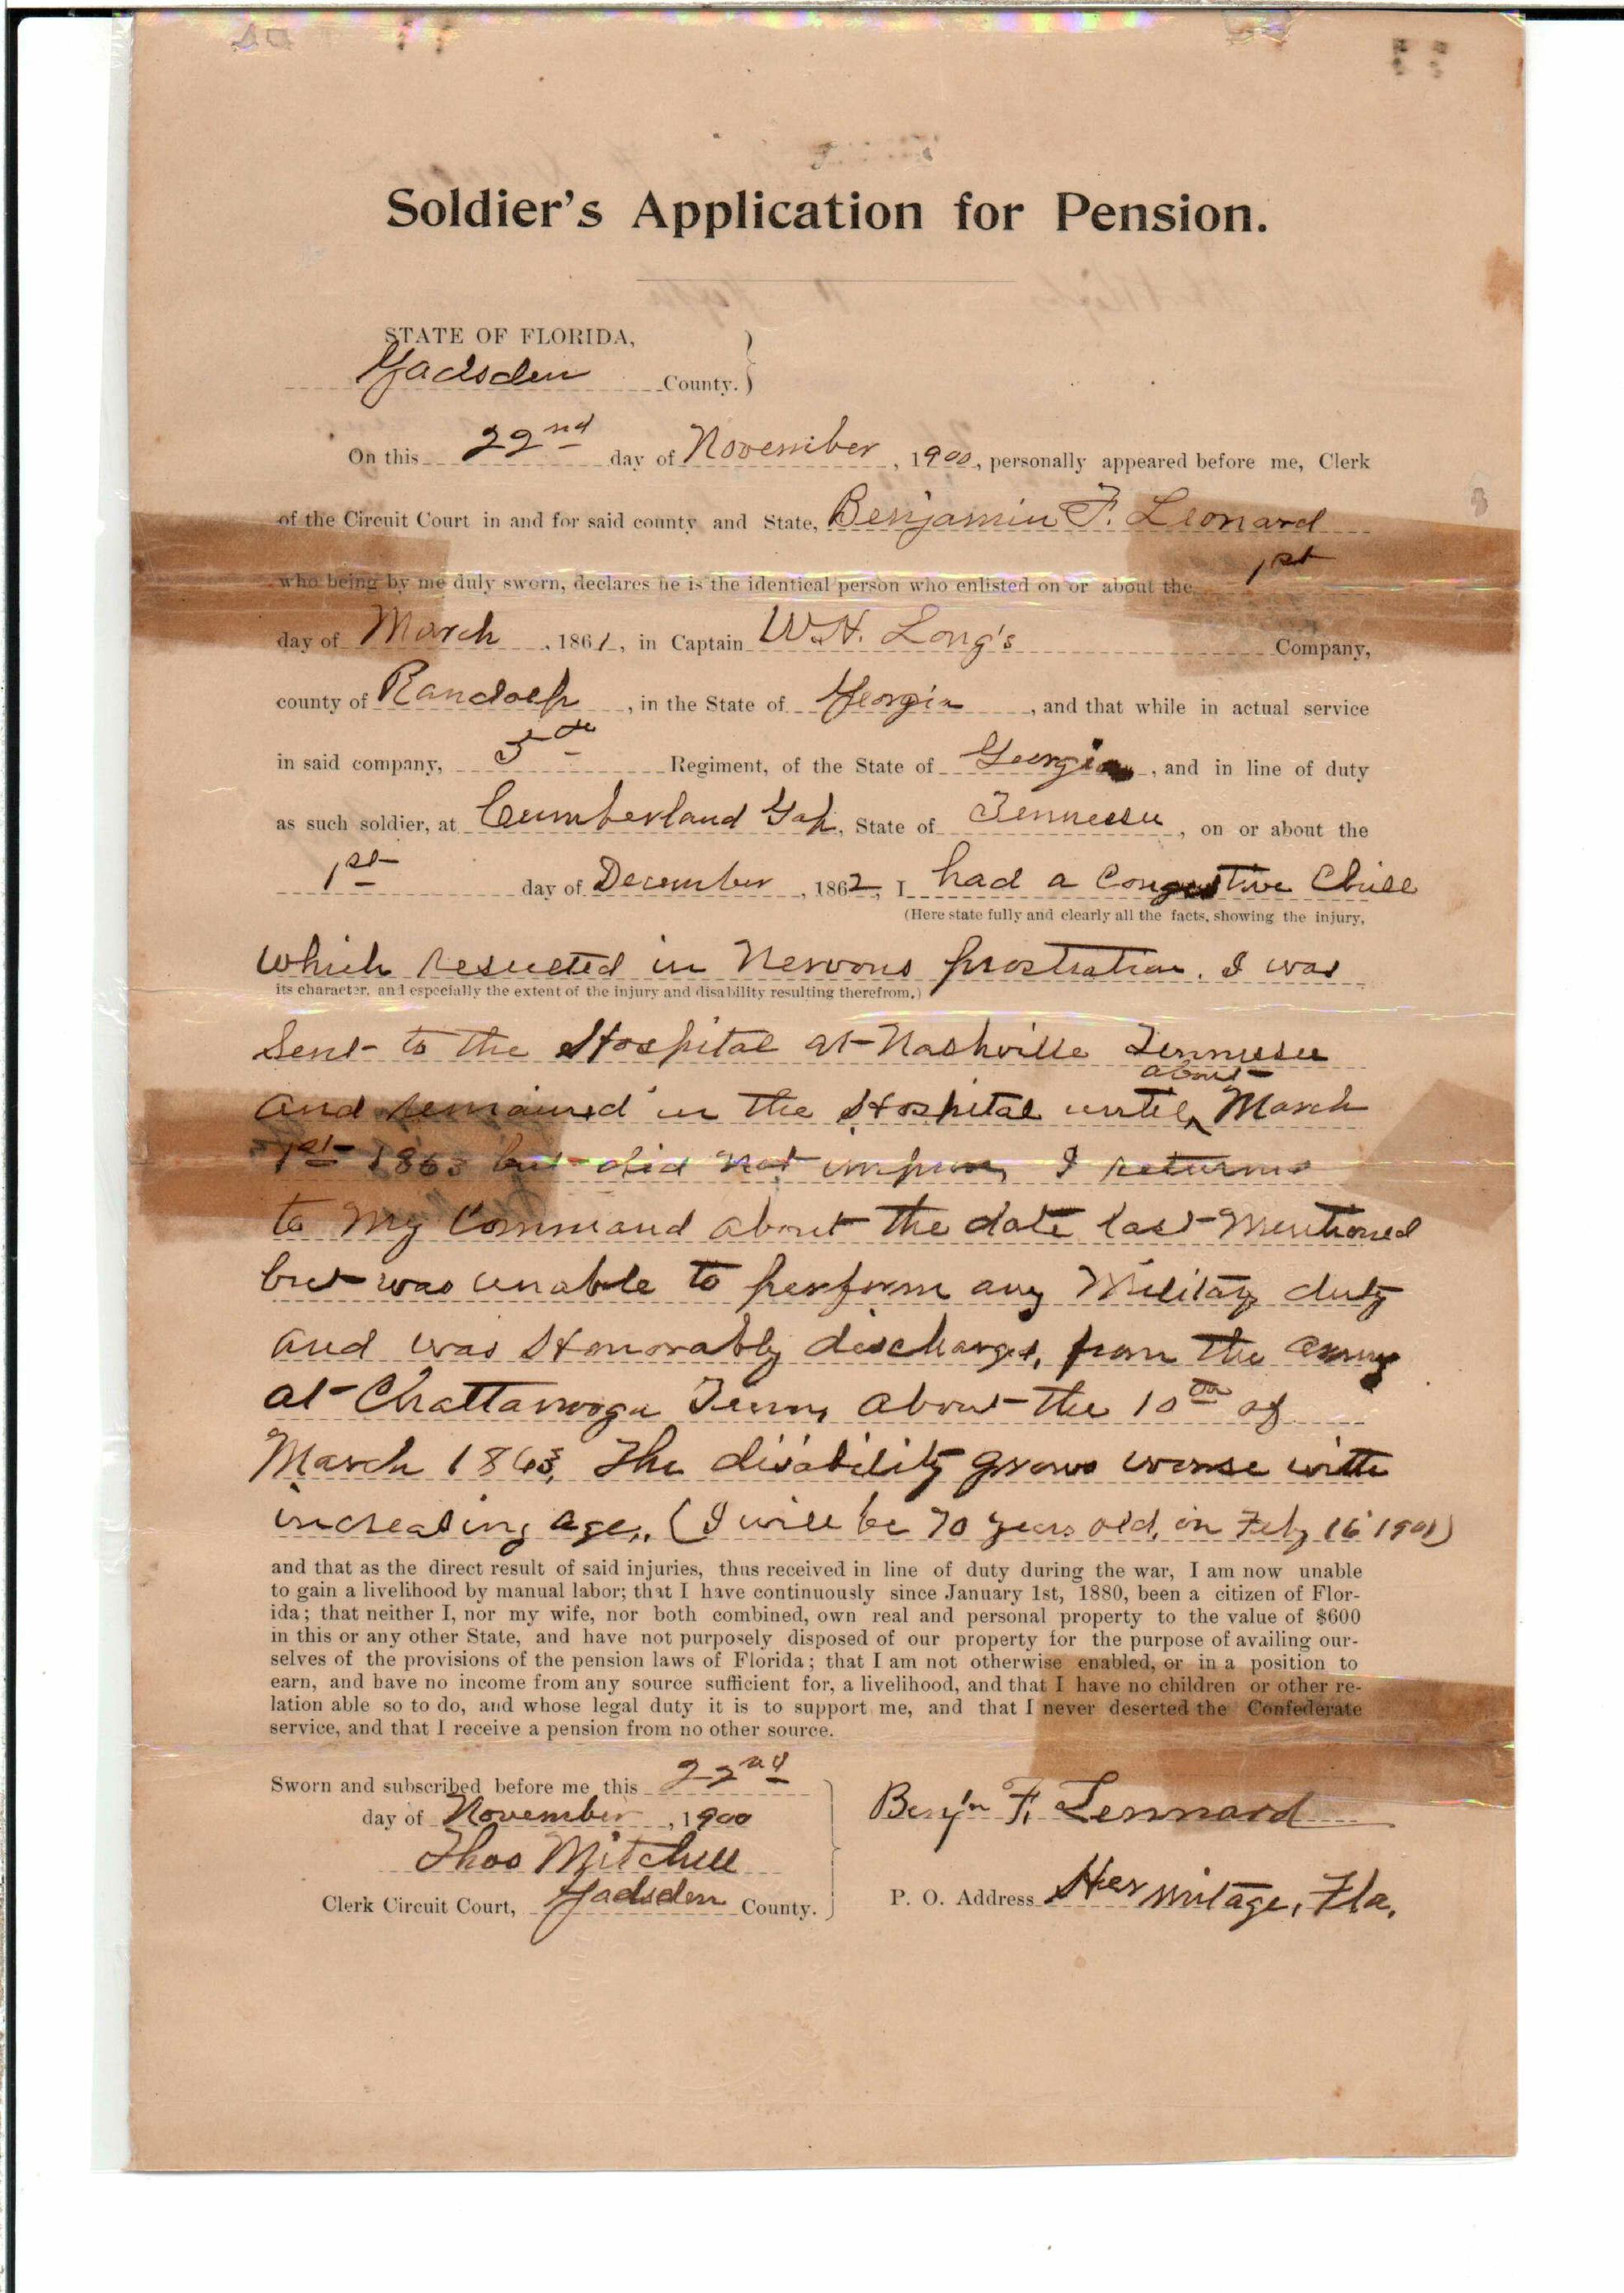 Soldier's Application for Pension.
STATE OF FLORIDA,
Gadsden County.
On this 22nd day of November, 1900, personally appeared before me, Clerk
of the Circuit Court in and for said county and State, Benjamin F. Leonard
who being by me duly sworn, declares he is the identical person who enlisted on or about the 1st
day of March, 1861, in Captain W.H. Long's Company,
county of Randolph, in the State of Georgia, and that while in actual service
in said company, 5th Regiment, of the State of Georgia, and in line of duty
as such soldier, at Cumberland Gap, State of Tennessee, on or about the
1st day of December, 1862, I had a Congestive Chill
(Here state fully and clearly all the facts, showing the injury,
which resulted in Nervous prostration. I was
its character, and especially the extent of the injury and disability resulting therefrom.)
Sent to the Hospital at Nashville Tennessee
and remained in the Hospital until about March
1st 1863 but did not improve, I returned
to my Command about the date last Mentioned
but was unable to perform any Military duty
and was Honorably discharged, from the army
at Chattanooga Tenn, about the 10th of
March 1863, The disability grows worse with
increasing age,. (I will be 70 years old, in Feby 16 1901)
and that as the direct result of said injuries, thus received in line of duty during the war, I am now unable
to gain a livelihood by manual labor; that I have continuously since January 1st, 1880, been a citizen of Flor-
ida; that neither I, nor my wife, nor both combined, own real and personal property to the value of $600
in this or any other State, and have not purposely disposed of our property for the purpose of availing our-
selves of the provisions of the pension laws of Florida; that I am not otherwise enabled, or in a position to
earn, and have no income from any source sufficient for, a livelihood, and that I have no children or other re-
lation able so to do, and whose legal duty it is to support me, and that I never deserted the Confederate
service, and that I receive a pension from no other source.
Sworn and subscribed before me this 22nd
day of November, 1900
Thos Mitchell
Clerk Circuit Court, Gadsden County.
Benj'n F. Lennard
P. O. Address Hermitage, Fla.